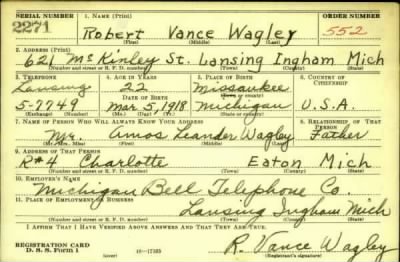 SERIAL NUMBER 1. NAME (Print) ORDER NUMBER
2271 Robert Vance Wagley 552
(First) (Middle) (Last)
2. ADDRESS (Print)
621 McKinley St. Lansing Ingham Mich
(Number and street or R. F. D. number) (Town) (County) (State)
3. TELEPHONE 4. AGE IN YEARS 5. PLACE OF BIRTH 6. COUNTRY OF CITIZENSHIP
Lansing 22 Missaukee
DATE OF BIRTH (Town or county)
5-7749 Mar 5, 1918 Michigan U.S.A.
(Exchange) (Number) (Mo.) (Day) (Yr.) (State or country)
7. NAME OF PERSON WHO WILL ALWAYS KNOW YOUR ADDRESS 8. RELATIONSHIP OF THAT PERSON
Mr. Amos Leander Wagley Father
(Mr., Mrs., Miss) (First) (Middle) (Last)
9. ADDRESS OF THAT PERSON
R#4 Charlotte Eaton Mich
(Number and street or R. F. D. number) (Town) (County) (State)
10. EMPLOYER'S NAME
Michigan Bell Telephone Co.
11. PLACE OF EMPLOYMENT OR BUSINESS
Lansing Ingham Mich
(Number and street or R. F. D. number) (Town) (County) (State)
I AFFIRM THAT I HAVE VERIFIED ABOVE ANSWERS AND THAT THEY ARE TRUE.
REGISTRATION CARD R. Vance Wagley
D. S. S. Form 1 (over) 16-17105 (Registrant's signature)